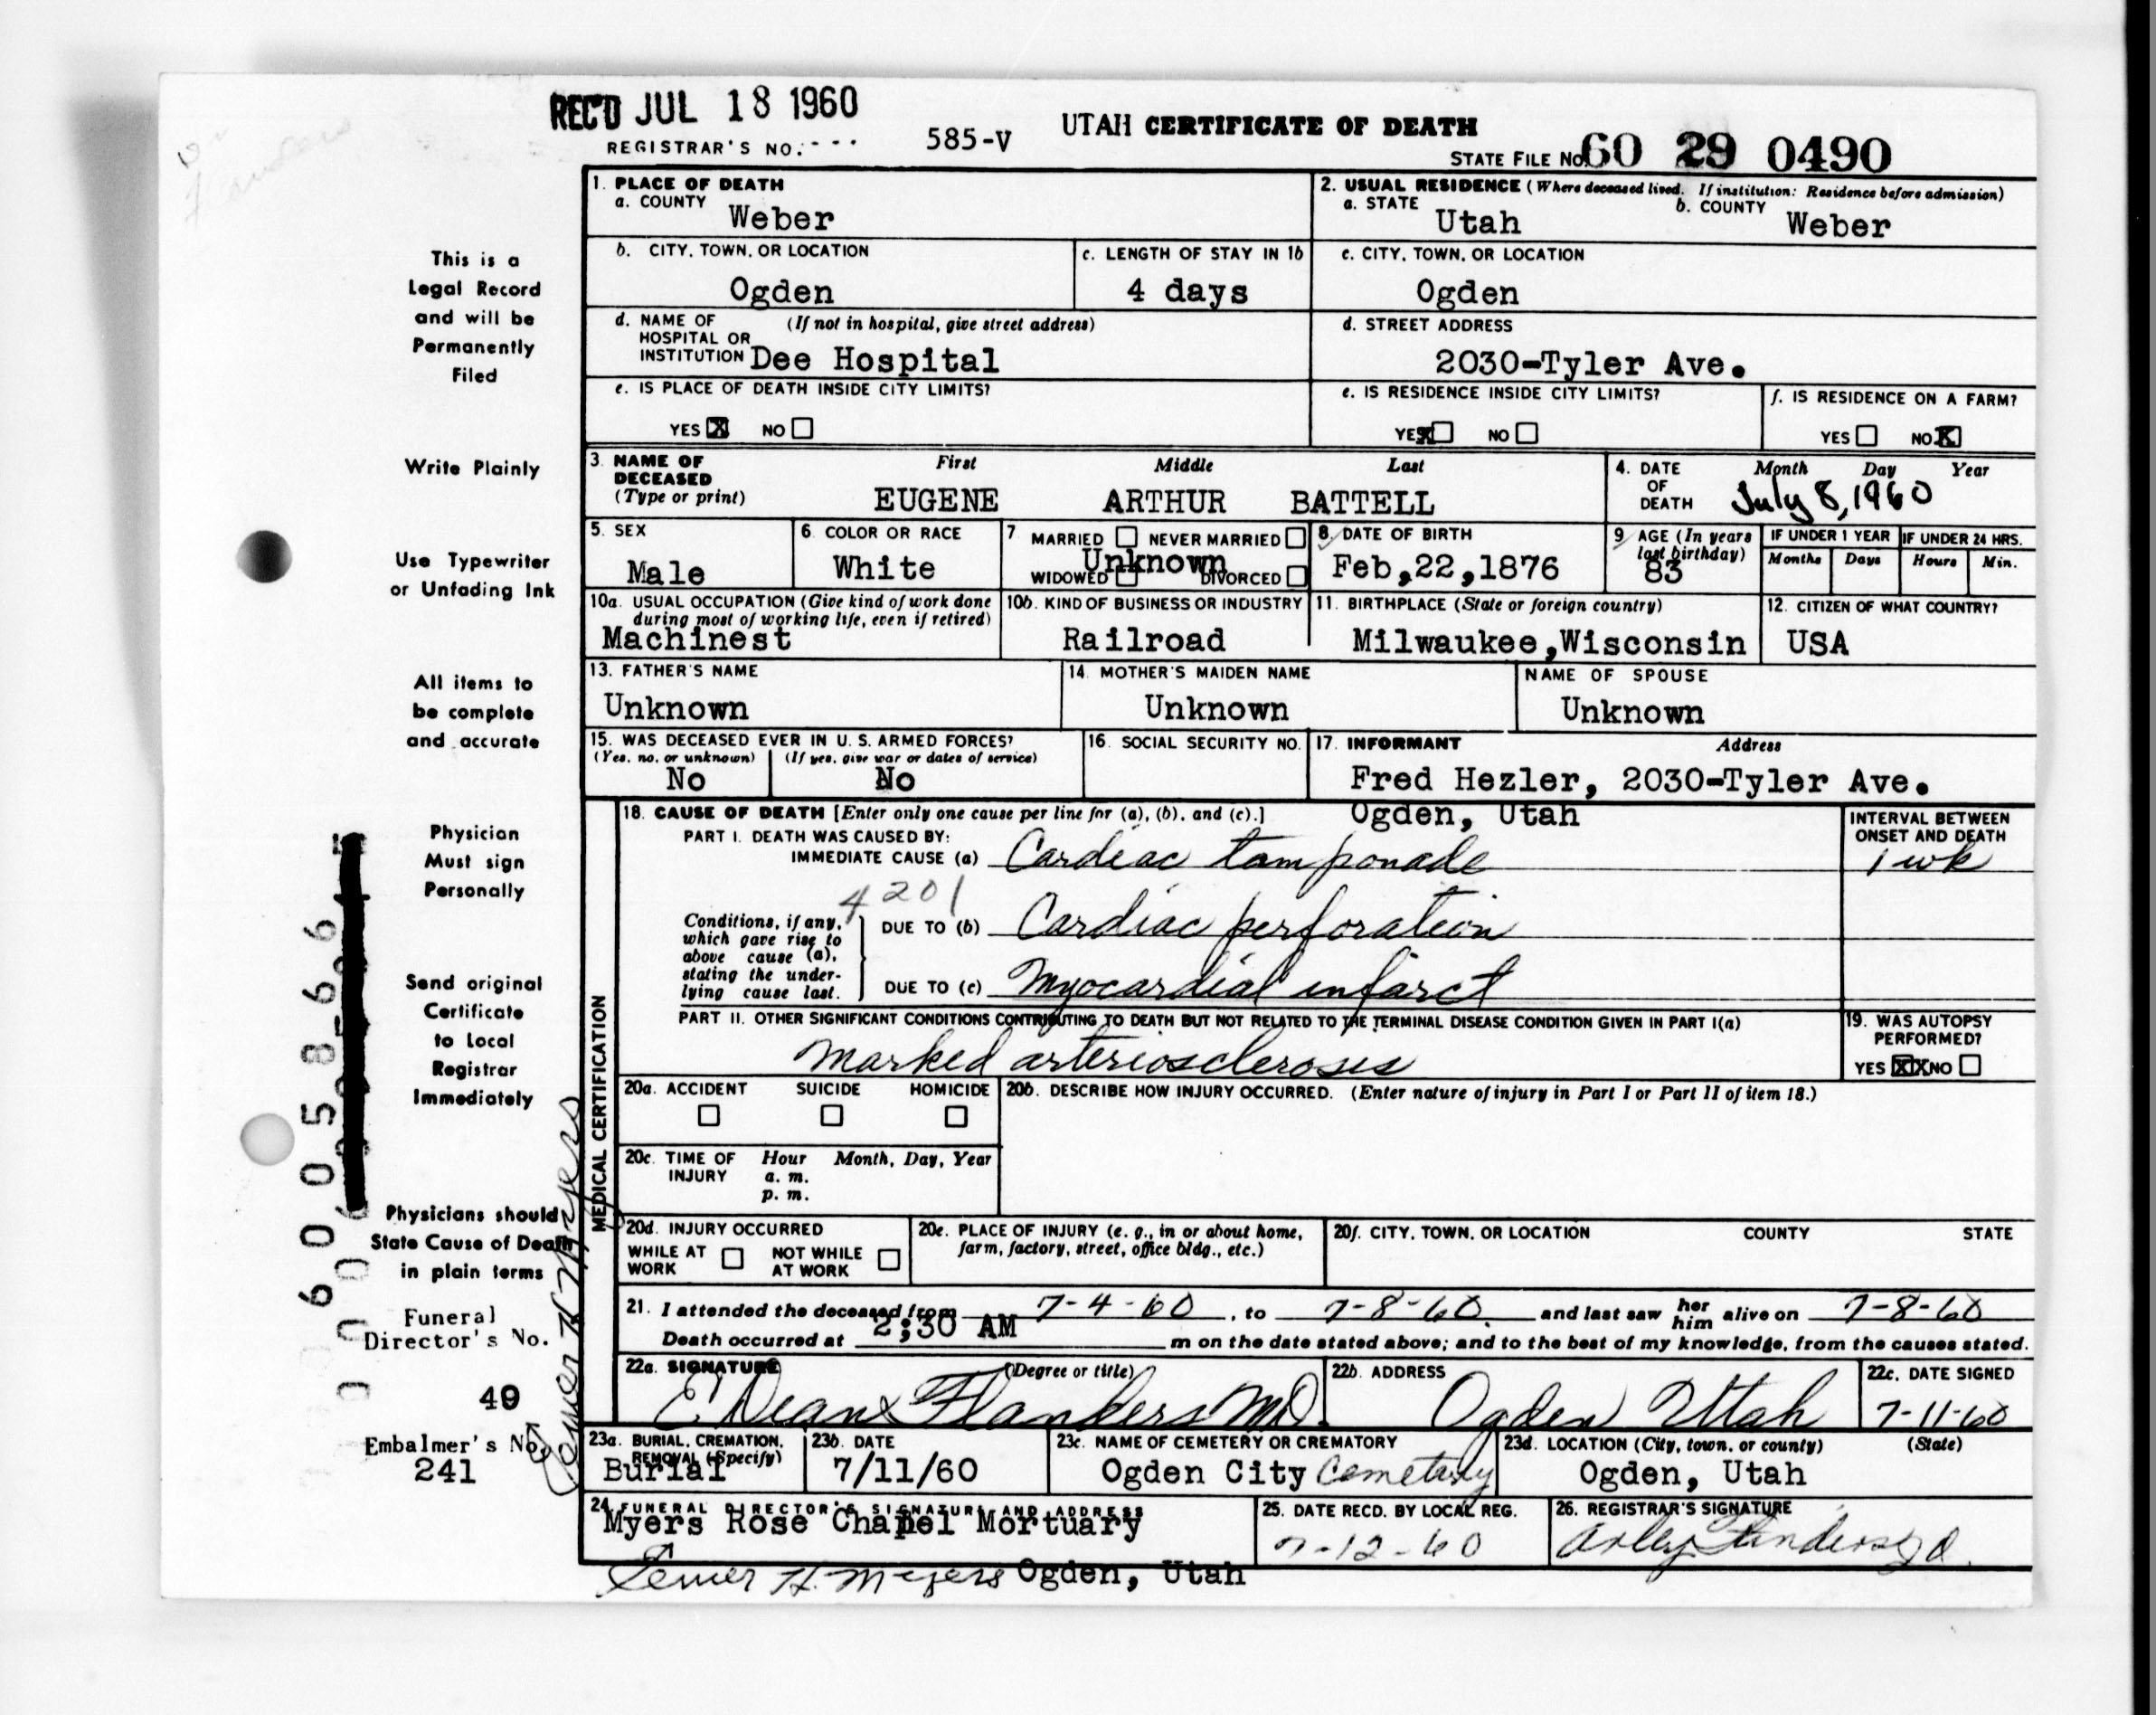 REC'D JUL 18 1960
REGISTRAR'S NO.
585-V
UTAH CERTIFICATE OF DEATH
STATE FILE NO. 60 29 0490
1. PLACE OF DEATH
a. COUNTY
Weber
2. USUAL RESIDENCE (Where deceased lived. If institution: Residence before admission)
a. STATE
Utah
b. COUNTY
Weber
b. CITY, TOWN, OR LOCATION
Ogden
c. LENGTH OF STAY IN 1b
4 days
c. CITY, TOWN, OR LOCATION
Ogden
d. NAME OF HOSPITAL OR INSTITUTION (If not in hospital, give street address)
Dee Hospital
d. STREET ADDRESS
2030-Tyler Ave.
e. IS PLACE OF DEATH INSIDE CITY LIMITS?
YES X NO
e. IS RESIDENCE INSIDE CITY LIMITS?
YES X NO
f. IS RESIDENCE ON A FARM?
YES NO X
3. NAME OF DECEASED (Type or print)
First Middle Last
EUGENE ARTHUR BATTELL
4. DATE OF DEATH Month Day Year
July 8, 1960
5. SEX
Male
6. COLOR OR RACE
White
7. MARRIED NEVER MARRIED
Unknown
WIDOWED DIVORCED
8. DATE OF BIRTH
Feb,22,1876
9. AGE (In years last birthday)
83
IF UNDER 1 YEAR
Months Days
IF UNDER 24 HRS.
Hours Min.
10a. USUAL OCCUPATION (Give kind of work done during most of working life, even if retired)
Machinest
10b. KIND OF BUSINESS OR INDUSTRY
Railroad
11. BIRTHPLACE (State or foreign country)
Milwaukee,Wisconsin
12. CITIZEN OF WHAT COUNTRY?
USA
13. FATHER'S NAME
Unknown
14. MOTHER'S MAIDEN NAME
Unknown
NAME OF SPOUSE
Unknown
15. WAS DECEASED EVER IN U. S. ARMED FORCES?
(Yes, no, or unknown) (If yes, give war or dates of service)
No No
16. SOCIAL SECURITY NO.
17. INFORMANT Address
Fred Hezler, 2030-Tyler Ave.
Ogden, Utah
MEDICAL CERTIFICATION
18. CAUSE OF DEATH [Enter only one cause per line for (a), (b), and (c).]
INTERVAL BETWEEN ONSET AND DEATH
PART I. DEATH WAS CAUSED BY:
IMMEDIATE CAUSE (a) Cardiac tamponade
1 wk
4201
Conditions, if any, which gave rise to above cause (a), stating the underlying cause last.
DUE TO (b) Cardiac perforation
DUE TO (c) Myocardial infarct
PART II. OTHER SIGNIFICANT CONDITIONS CONTRIBUTING TO DEATH BUT NOT RELATED TO THE TERMINAL DISEASE CONDITION GIVEN IN PART I(a)
marked arteriosclerosis
19. WAS AUTOPSY PERFORMED?
YES XX NO
20a. ACCIDENT SUICIDE HOMICIDE
20b. DESCRIBE HOW INJURY OCCURRED. (Enter nature of injury in Part I or Part II of item 18.)
20c. TIME OF INJURY Hour Month, Day, Year
a. m.
p. m.
20d. INJURY OCCURRED
WHILE AT WORK NOT WHILE AT WORK
20e. PLACE OF INJURY (e. g., in or about home, farm, factory, street, office bldg., etc.)
20f. CITY, TOWN, OR LOCATION COUNTY STATE
21. I attended the deceased from 7-4-60, to 7-8-60, and last saw her him alive on 7-8-60
Death occurred at 2:30 AM m on the date stated above; and to the best of my knowledge, from the causes stated.
22a. SIGNATURE (Degree or title)
E Dean Flanders MD.
22b. ADDRESS
Ogden Utah
22c. DATE SIGNED
7-11-60
23a. BURIAL, CREMATION, REMOVAL (Specify)
Burial
23b. DATE
7/11/60
23c. NAME OF CEMETERY OR CREMATORY
Ogden City Cemetery
23d. LOCATION (City, town, or county) (State)
Ogden, Utah
24. FUNERAL DIRECTOR'S SIGNATURE AND ADDRESS
Myers Rose Chapel Mortuary
H. Meyers Ogden, Utah
25. DATE RECD. BY LOCAL REG.
7-12-60
26. REGISTRAR'S SIGNATURE
This is a
Legal Record
and will be
Permanently
Filed
Write Plainly
Use Typewriter
or Unfading Ink
All items to
be complete
and accurate
Physician
Must sign
Personally
Send original
Certificate
to Local
Registrar
Immediately
Physicians should
State Cause of Death
in plain terms
Funeral
Director's No.
49
Embalmer's No.
241